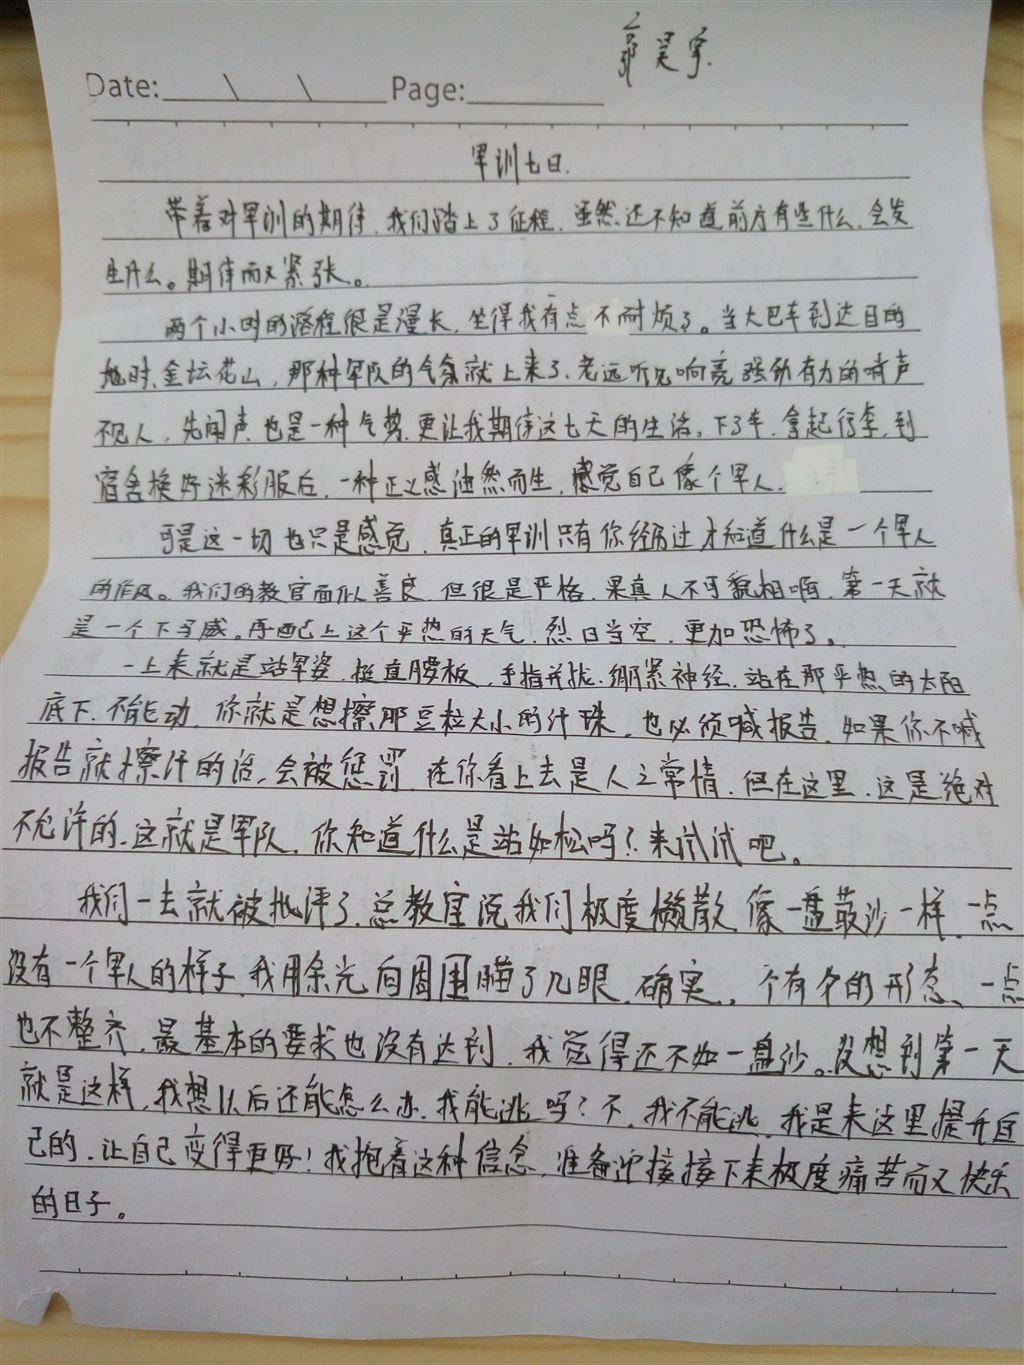 昊宇
Date: \ \ Page:
军训七日.
带着对军训的期待,我们踏上了征程,虽然还不知道前方有些什么,会发
生什么。期待而又紧张。
两个小时的路程很是漫长,坐得我有点不耐烦了。当大巴车到达目的
地时,金坛花山,那种军队的气氛就上来了,老远听见响亮强劲有力的哨声
不见人,先闻声,也是一种气势,更让我期待这七天的生活。下了车,拿起行李,到
宿舍换好迷彩服后,一种正义感油然而生,感觉自己像个军人.
可是这一切也只是感觉,真正的军训只有你经历过才知道什么是一个军人
的作风。我们的教官面似善良,但很是严格,果真人不可貌相啊,第一天就
是一个下马威。再配上这个炎热的天气,烈日当空,更加恐怖了。
一上来就是站军姿,挺直腰板,手指并拢,绷紧神经,站在那炎热的太阳
底下,不能动,你就是想擦那豆粒大小的汗珠,也必须喊报告,如果你不喊
报告就擦汗的话,会被惩罚,在你看上去是人之常情,但在这里,这是绝对
不允许的,这就是军队,你知道什么是站如松吗?来试试吧。
我们一去就被批评了,总教官说我们极度懒散,像一盘散沙一样,一点
没有一个军人的样子,我用余光向周围瞄了几眼,确实,个有个的形态,一点
也不整齐,最基本的要求也没有达到,我觉得还不如一盘沙。没想到第一天
就是这样,我想以后还能怎么办,我能逃吗?不,我不能逃,我是来这里提升自
己的,让自己变得更好!我抱着这种信念,准备迎接接下来极度痛苦而又快乐
的日子。